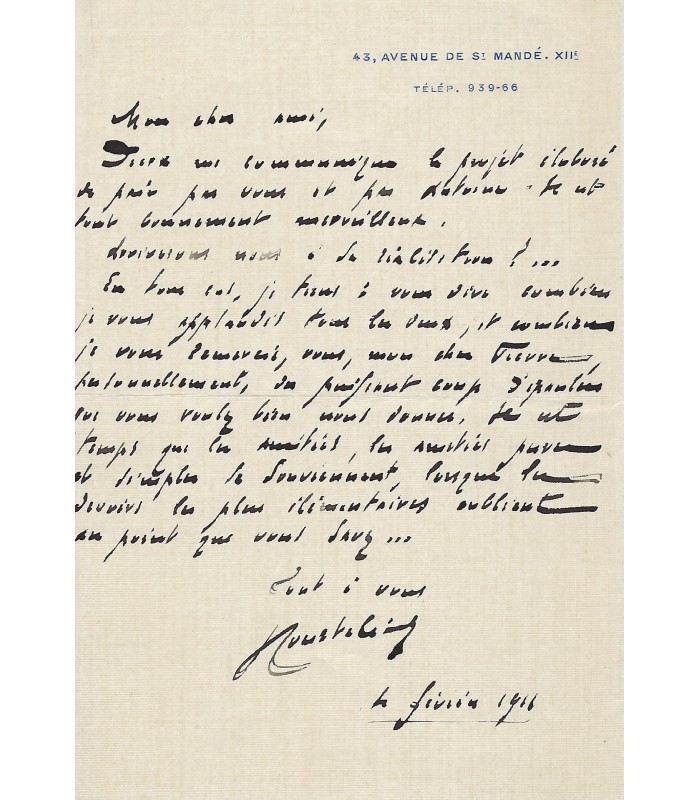 43, AVENUE DE ST MANDÉ. XIIE
TÉLÉP. 939-66
Mon cher ami,
me communique le projet élaboré
par vous et par Antoine. Il est
tout bonnement merveilleux.
Arriverons nous à sa réalisation ?...
En tous cas, je tiens à vous dire combien
je vous applaudis tous les deux, et combien
je vous remercie, vous, mon cher Pierre,
personnellement, du puissant coup d'épaule
que vous voulez bien nous donner. Il est
temps que les amitiés, les amitiés pures
et simples se souviennent, lorsque les
devoirs les plus élémentaires s'oublient
au point que vous savez...
Tout à vous
4 février 1911